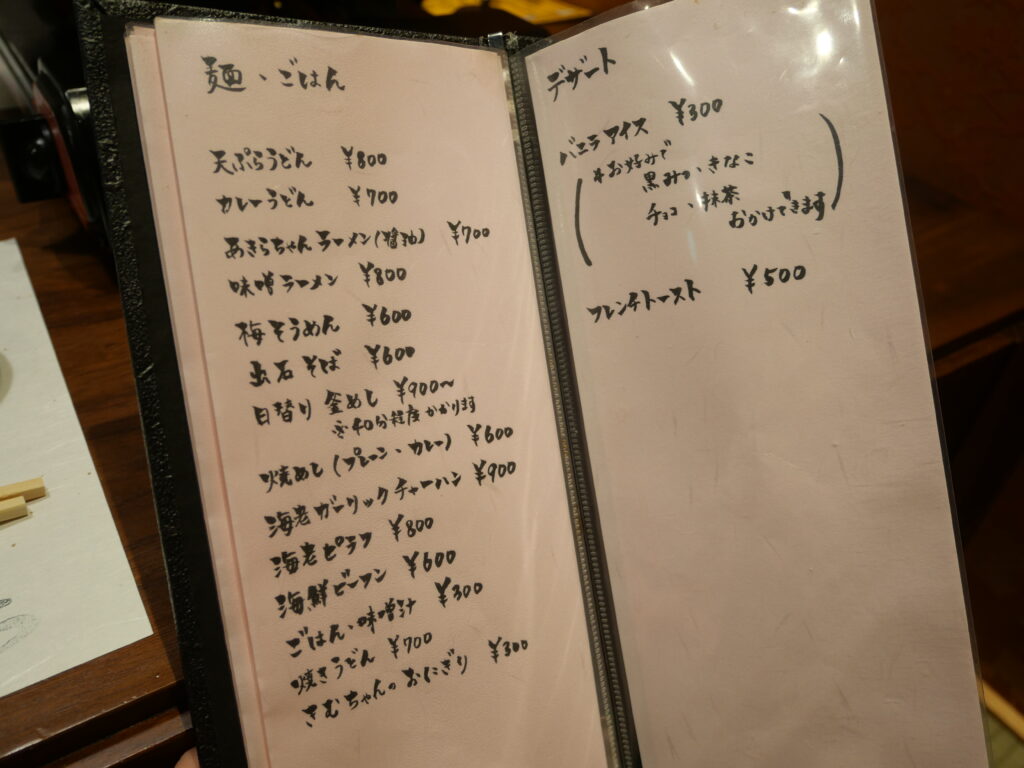 麺、ごはん
天ぷらうどん ¥800
カレーうどん ¥700
あきらちゃんラーメン(醤油) ¥700
味噌ラーメン ¥800
梅そうめん ¥600
出石そば ¥600
日替り釜めし ¥900〜
※40分程度かかります
焼めし(プレーン・カレー) ¥600
海老ガーリックチャーハン ¥900
海老ピラフ ¥800
海鮮ビーフン ¥600
ごはん・味噌汁 ¥300
焼きうどん ¥700
きむちゃんのおにぎり ¥300
デザート
バニラアイス ¥300
(*お好みで
黒みつ、きなこ
チョコ、抹茶
おかけできます)
フレンチトースト ¥500